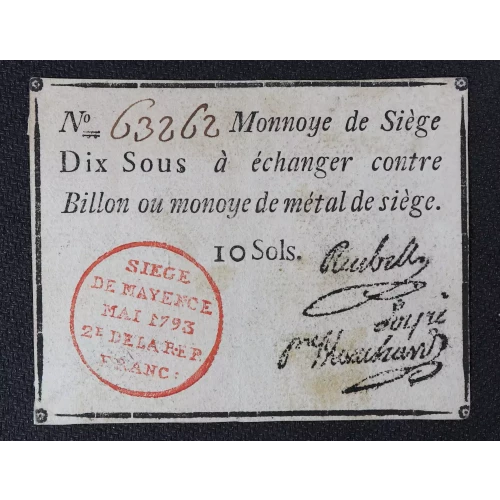 No 63262 Monnoye de Siège
Dix Sous à échanger contre
Billon ou monoye de métal de siège.
10 Sols.
SIEGE
DE MAYENCE
MAI 1793
2E DE LA REP
FRANC:
Reubell